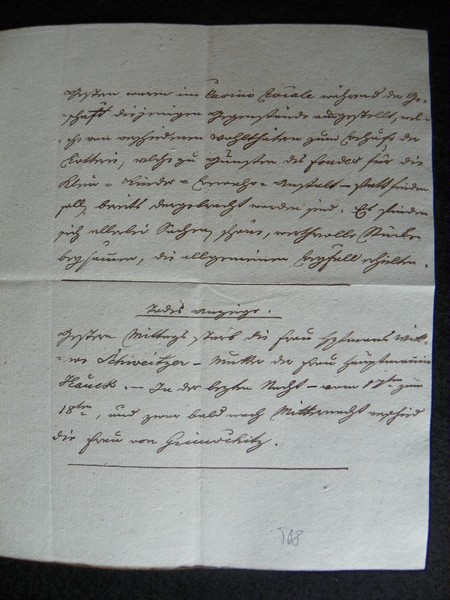 Gestern waren im Casino Locale während der Ge-
schäft diejenigen Gegenstände ausgestellt, wel-
che von verschiedenen Wohlthätern zum Behufe der
Lotterie, welche zu Gunsten des Fondes für die
Klein-Kinder-Bewahr-Anstalt – statt finden
soll, bereits dargebracht worden sind. Es finden
sich allerlei Sachen, schöne, werthvolle Stücke
beysammen, die allgemeinen Beyfall erhielten.
Todes Anzeige.
Gestern Mittags starb die Frau Witt-
we Schweitzer – Mutter der Frau Hauptmannin
Hauck. – In der letzten Nacht – vom 17ten zum
18ten, und zwar bald nach Mitternacht verschied
die Frau von